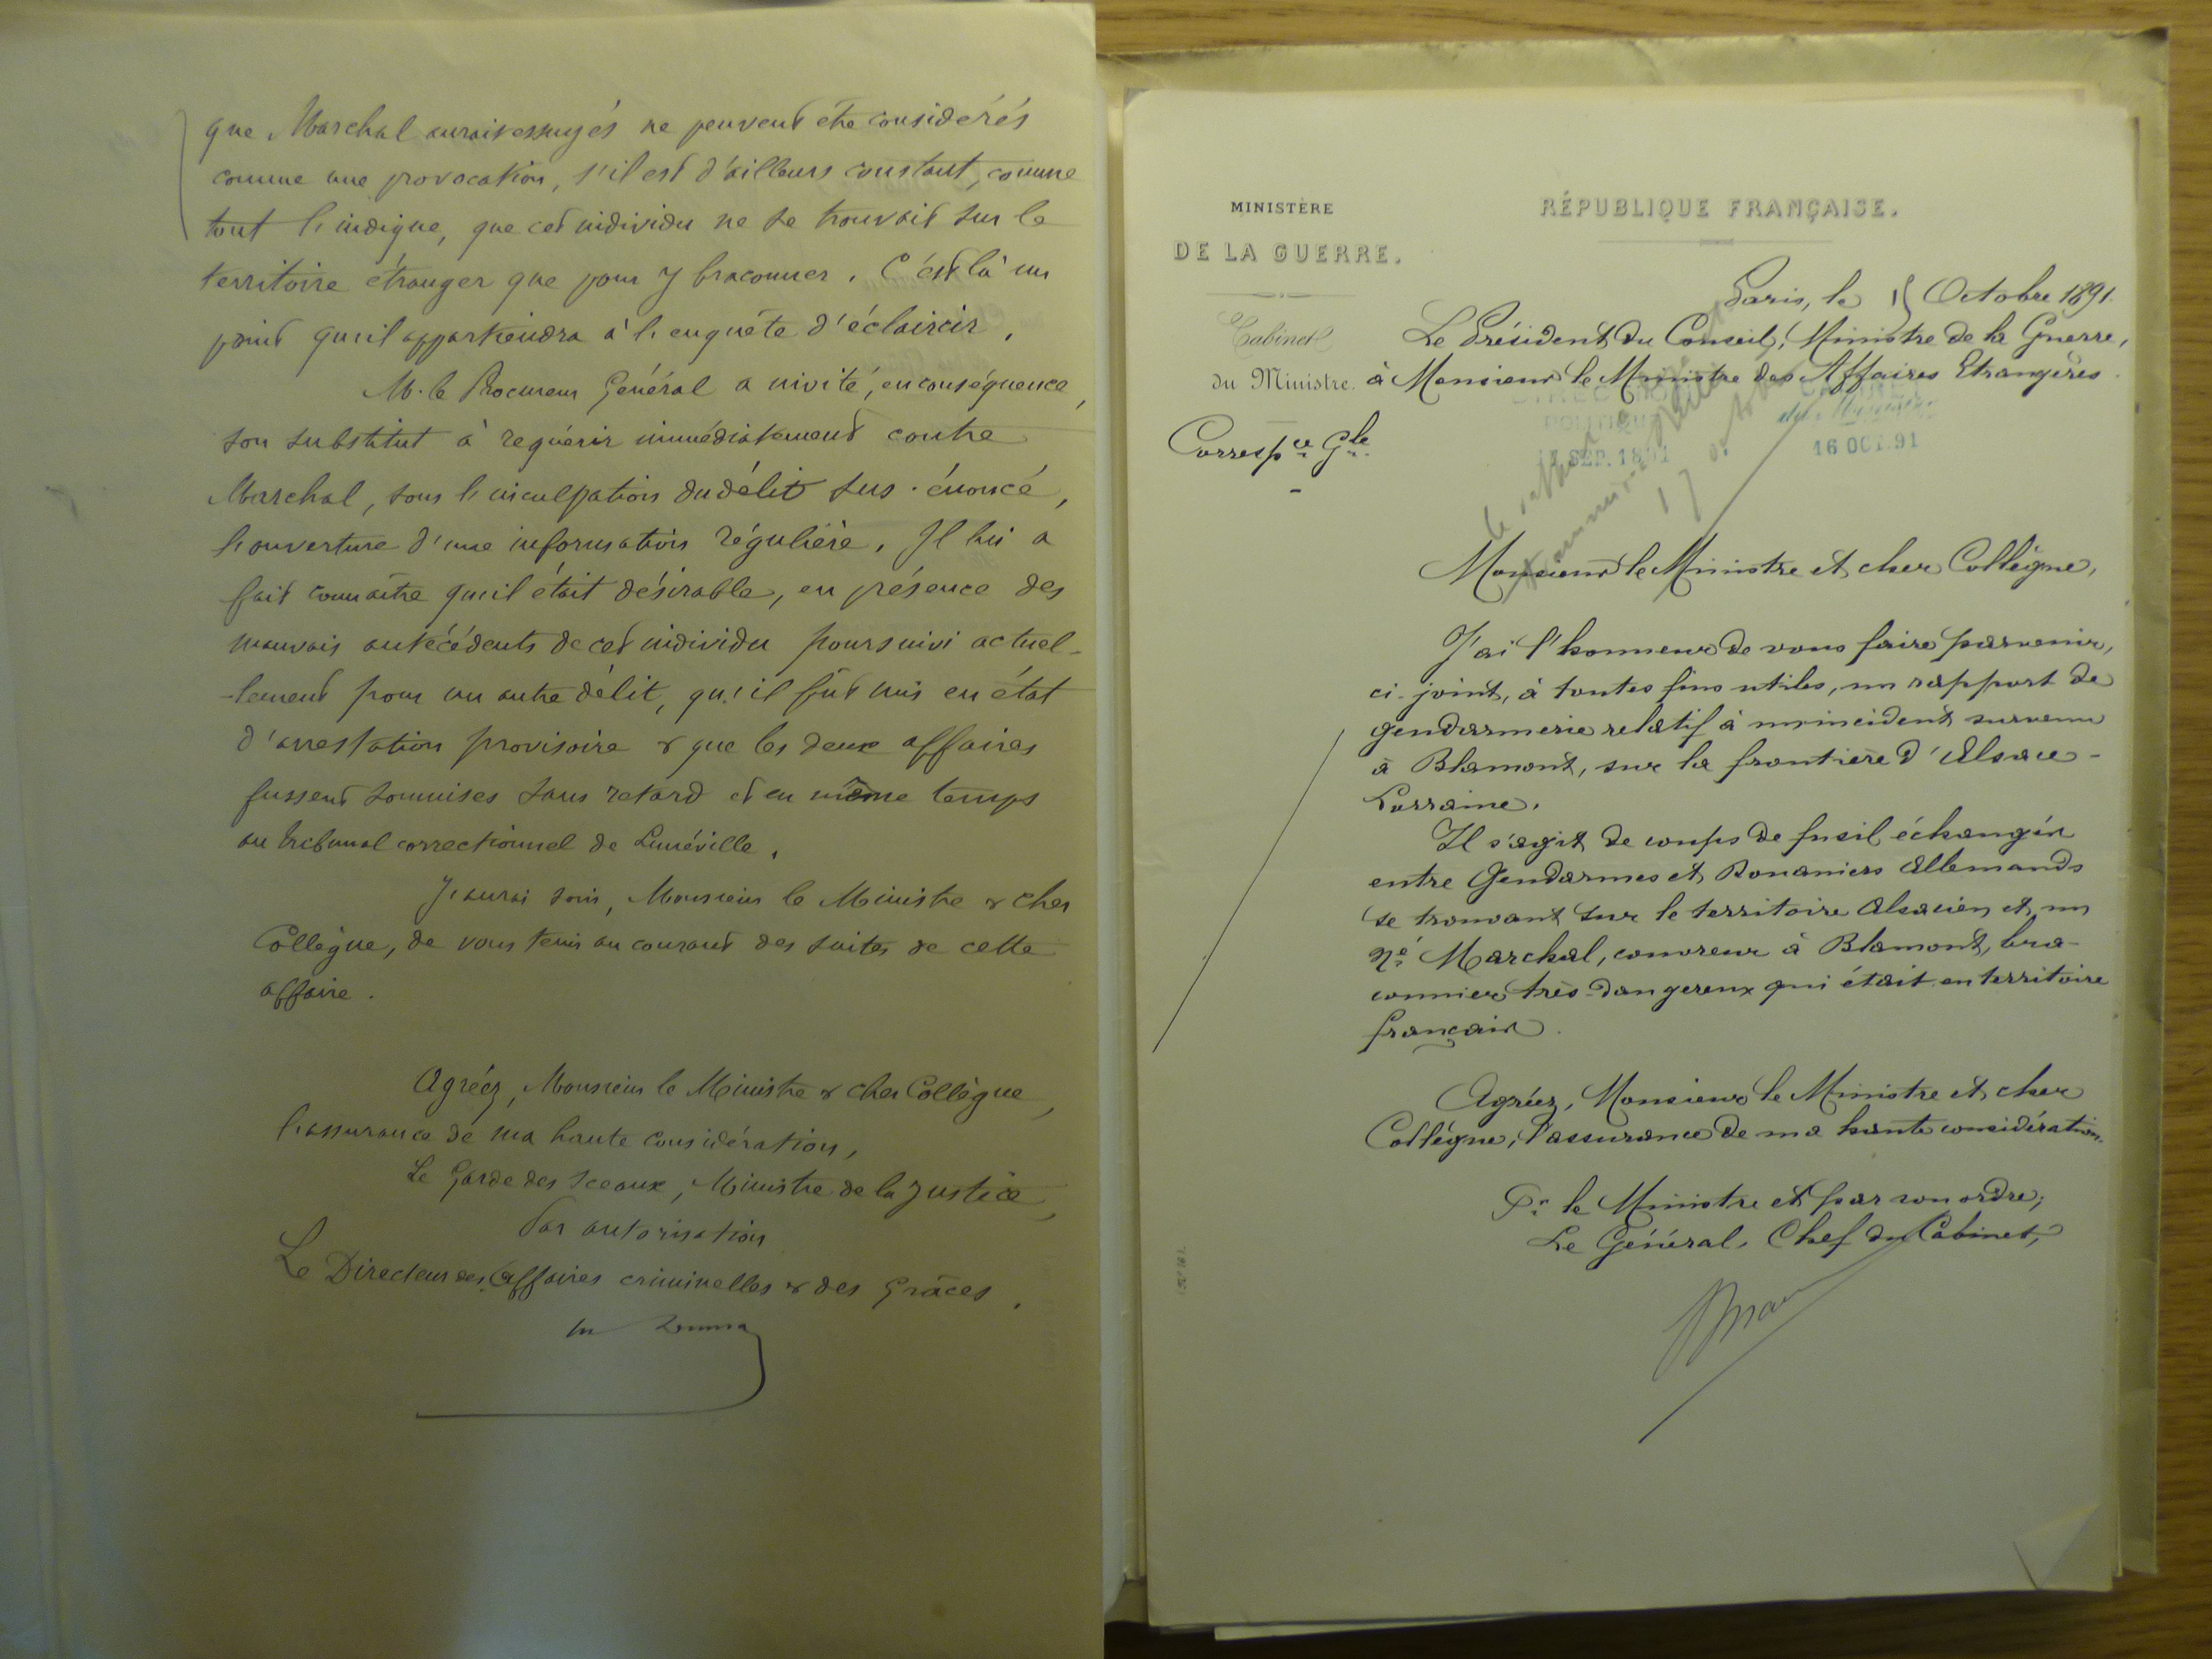 que Marchal aurait essuyés ne peuvent être considérés
comme une provocation, s'il est d'ailleurs constant, comme
tout l'indique, que cet individu ne se trouvait sur le
territoire étranger que pour y braconner. C'est là un
point qu'il appartiendra à l'enquête d'éclaircir.
M. le Procureur Général a invité, en conséquence,
son substitut à requérir immédiatement contre
Marchal, sous l'inculpation du délit sus-énoncé,
l'ouverture d'une information régulière. Il lui a
fait connaître qu'il était désirable, en présence des
mauvais antécédents de cet individu poursuivi actuel-
-lement pour un autre délit, qu'il fût mis en état
d'arrestation provisoire & que les deux affaires
fussent soumises sans retard et en même temps
au tribunal correctionnel de Lunéville.
J'aurai soin, Monsieur le Ministre & cher
Collègue, de vous tenir au courant des suites de cette
affaire.
Agréez, Monsieur le Ministre & cher Collègue,
l'assurance de ma haute considération,
Le Garde des Sceaux, Ministre de la Justice,
Par autorisation
Le Directeur des Affaires criminelles & des Grâces.
MINISTÈRE
DE LA GUERRE.
Cabinet
du Ministre.
Corresp.ce G.le
RÉPUBLIQUE FRANÇAISE.
Paris, le 15 Octobre 1891.
Le Président du Conseil, Ministre de la Guerre,
à Monsieur le Ministre des Affaires Etrangères.
DIRECTION
POLITIQUE
SEP. 1891
CABINET
du Ministre
16 OCT. 91
17
Monsieur le Ministre et cher Collègue,
J'ai l'honneur de vous faire parvenir,
ci-joint, à toutes fins utiles, un rapport de
gendarmerie relatif à un incident survenu
à Blamont, sur la frontière d'Alsace-
Lorraine.
Il s'agit de coups de fusil échangés
entre Gendarmes et Douaniers Allemands
se trouvant sur le territoire Alsacien et un
né Marchal, couvreur à Blamont, bra-
connier très-dangereux qui était en territoire
français.
Agréez, Monsieur le Ministre et cher
Collègue, l'assurance de ma haute considération.
Pr le Ministre et par son ordre;
Le Général, Chef du Cabinet,